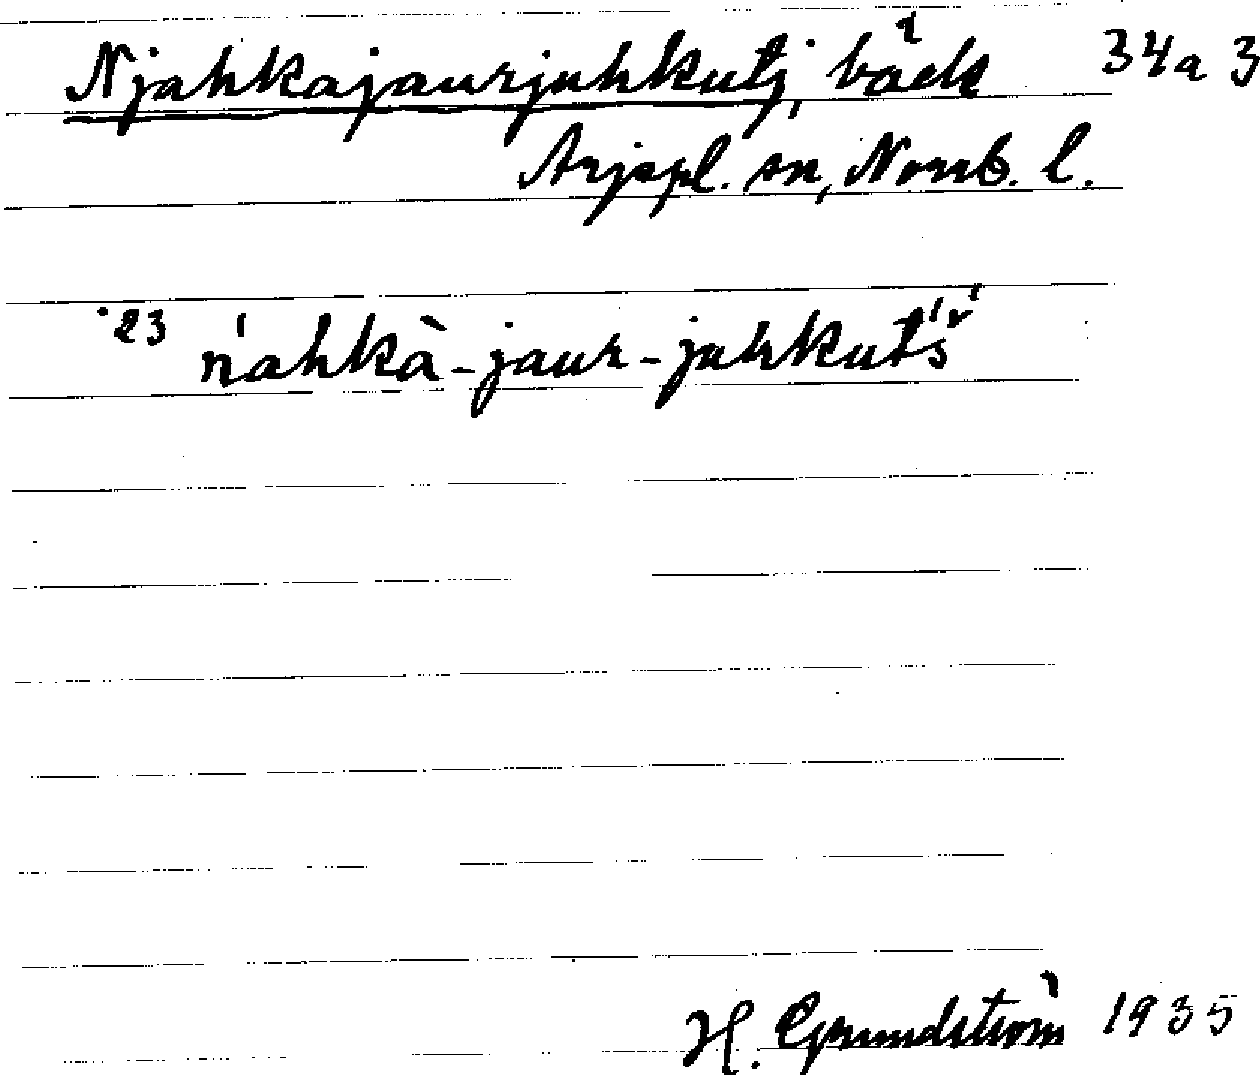 Njahkajaurjuhkutj, bäck 34a 3
Arjepl. sn, Norrb. l.
·23 ńahkà-jaur-juhkut́š́
H. Grundström 1935